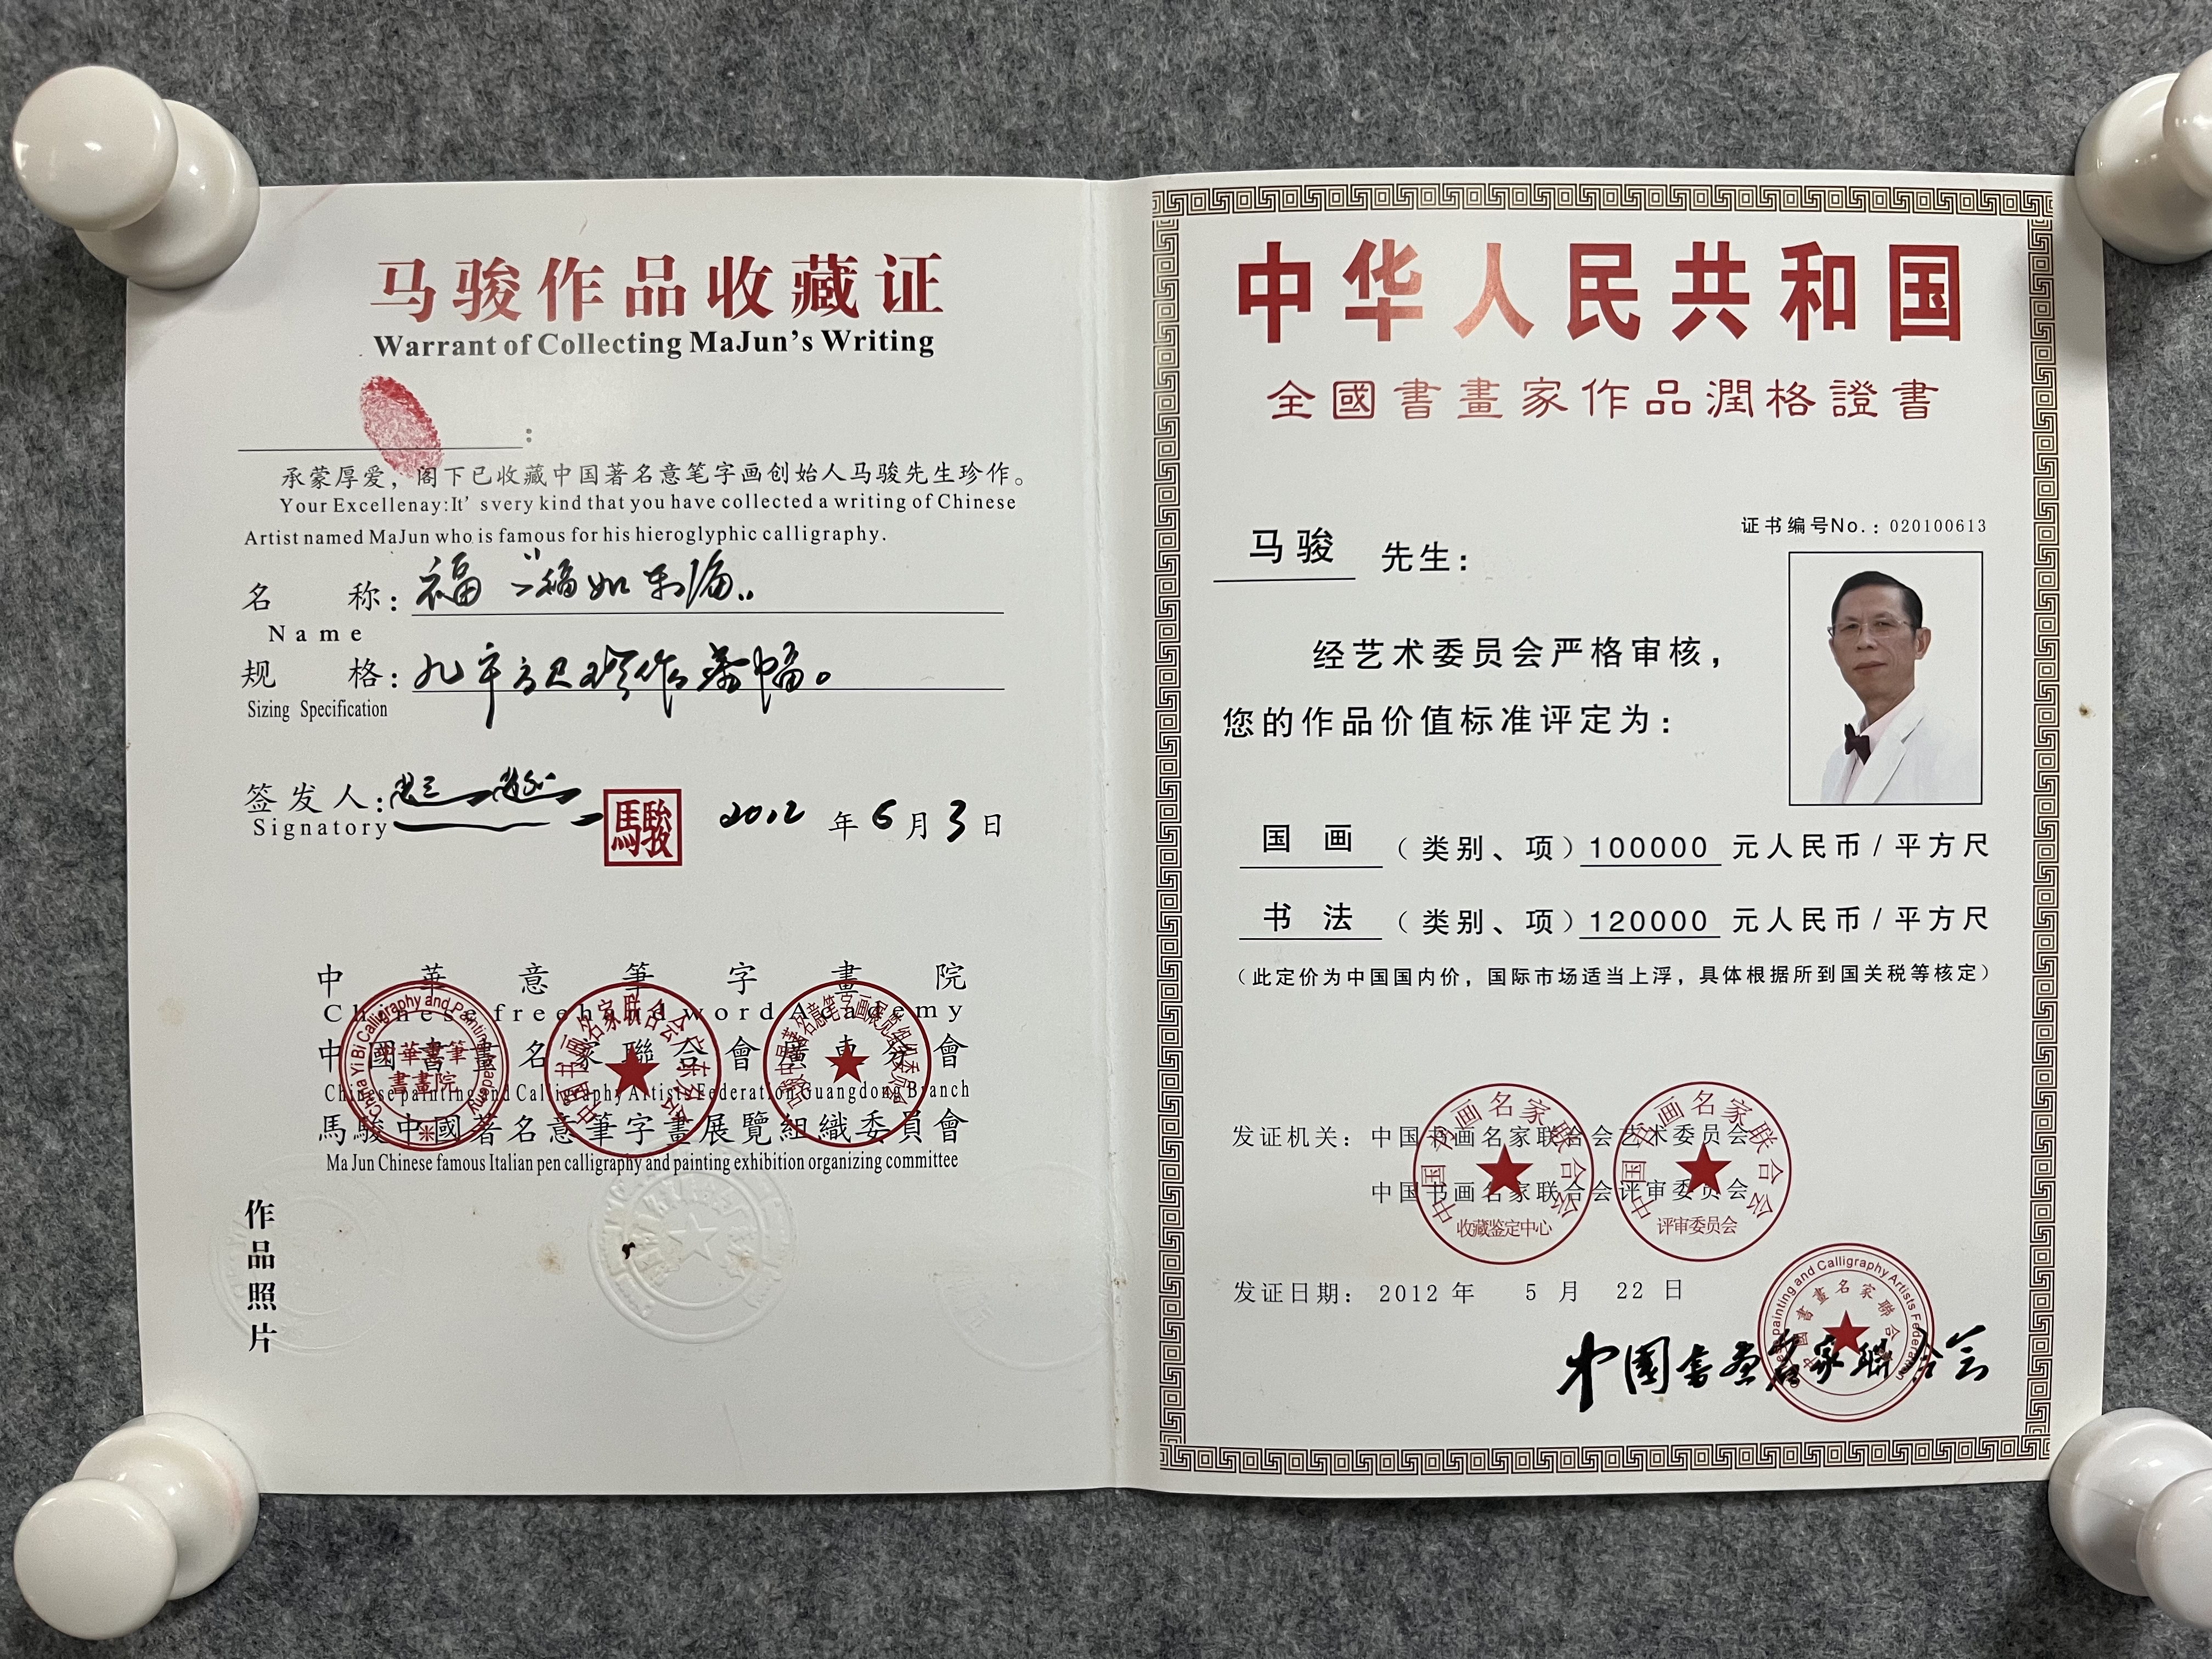 马骏作品收藏证
Warrant of Collecting MaJun's Writing
:
承蒙厚爱，阁下已收藏中国著名意笔字画创始人马骏先生珍作。
Your Excellenay:It' svery kind that you have collected a writing of Chinese
Artist named MaJun who is famous for his hieroglyphic calligraphy.
名 称: 福 福如东海
Name
规 格:
Sizing Specification
签发人:
Signatory
馬駿
2012 年 6 月 3 日
中華意筆字畫院
Chinese freehand word Academy
中國書畫名家聯合會廣東分會
Chinese painting and Calligraphy Artists Federation Guangdong Branch
馬駿中國著名意筆字畫展覽組織委員會
Ma Jun Chinese famous Italian pen calligraphy and painting exhibition organizing committee
作品照片
中华人民共和国
全國書畫家作品潤格證書
证书编号No.: 020100613
马骏 先生:
经艺术委员会严格审核，
您的作品价值标准评定为:
国画（类别、项）100000 元人民币/平方尺
书法（类别、项）120000 元人民币/平方尺
（此定价为中国国内价，国际市场适当上浮，具体根据所到国关税等核定）
发证机关: 中国书画名家联合会艺术委员会
中国书画名家联合会评审委员会
中国书画名家联合会
收藏鉴定中心
中国书画名家联合会
评审委员会
发证日期: 2012 年 5 月 22 日
中国书画名家联合会